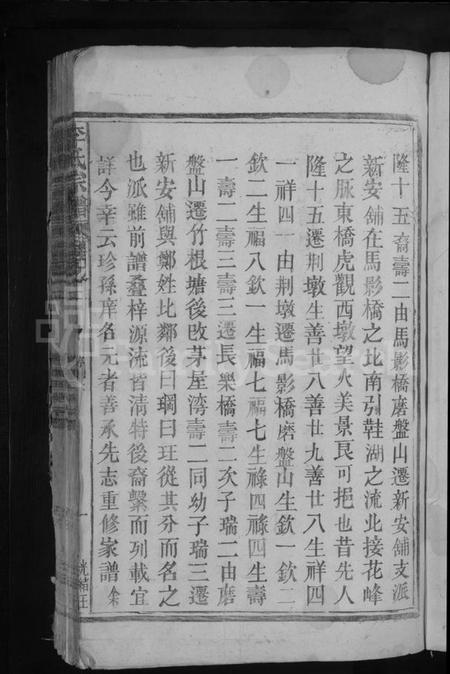 隆十五裔壽二由馬影橋磨盤山遷新安舖支派
新安舖在馬影橋之北南引鞋湖之流北接花峰
之脉東橋虎觀西墩望火美景良可挹也昔先人
隆十五遷荆墩生善廿八善廿九善廿八生祥四
一祥四一由荆墩遷馬影橋磨盤山生欽一欽二
欽二生福八欽一生福七福七生祿四祿四生壽
一壽二壽三壽三遷長樂橋壽二次子瑞二由磨
盤山遷竹根塘後改茅屋湾壽二同幼子瑞三遷
新安舖與鄭姓比鄰後曰琱曰玨從其分而名之
也派雖前譜叠梓源流皆清特後裔繫而列載宜
詳今幸云珍孫庠名元者善承先志重修家譜余
李氏宗譜